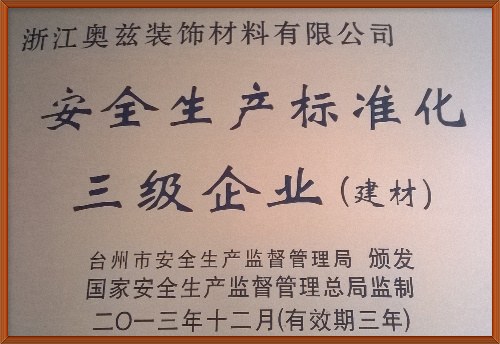 浙江奥兹装饰材料有限公司
安全生产标准化
三级企业(建材)
台州市安全生产监督管理局 颁发
国家安全生产监督管理总局监制
二〇一三年十二月(有效期三年)